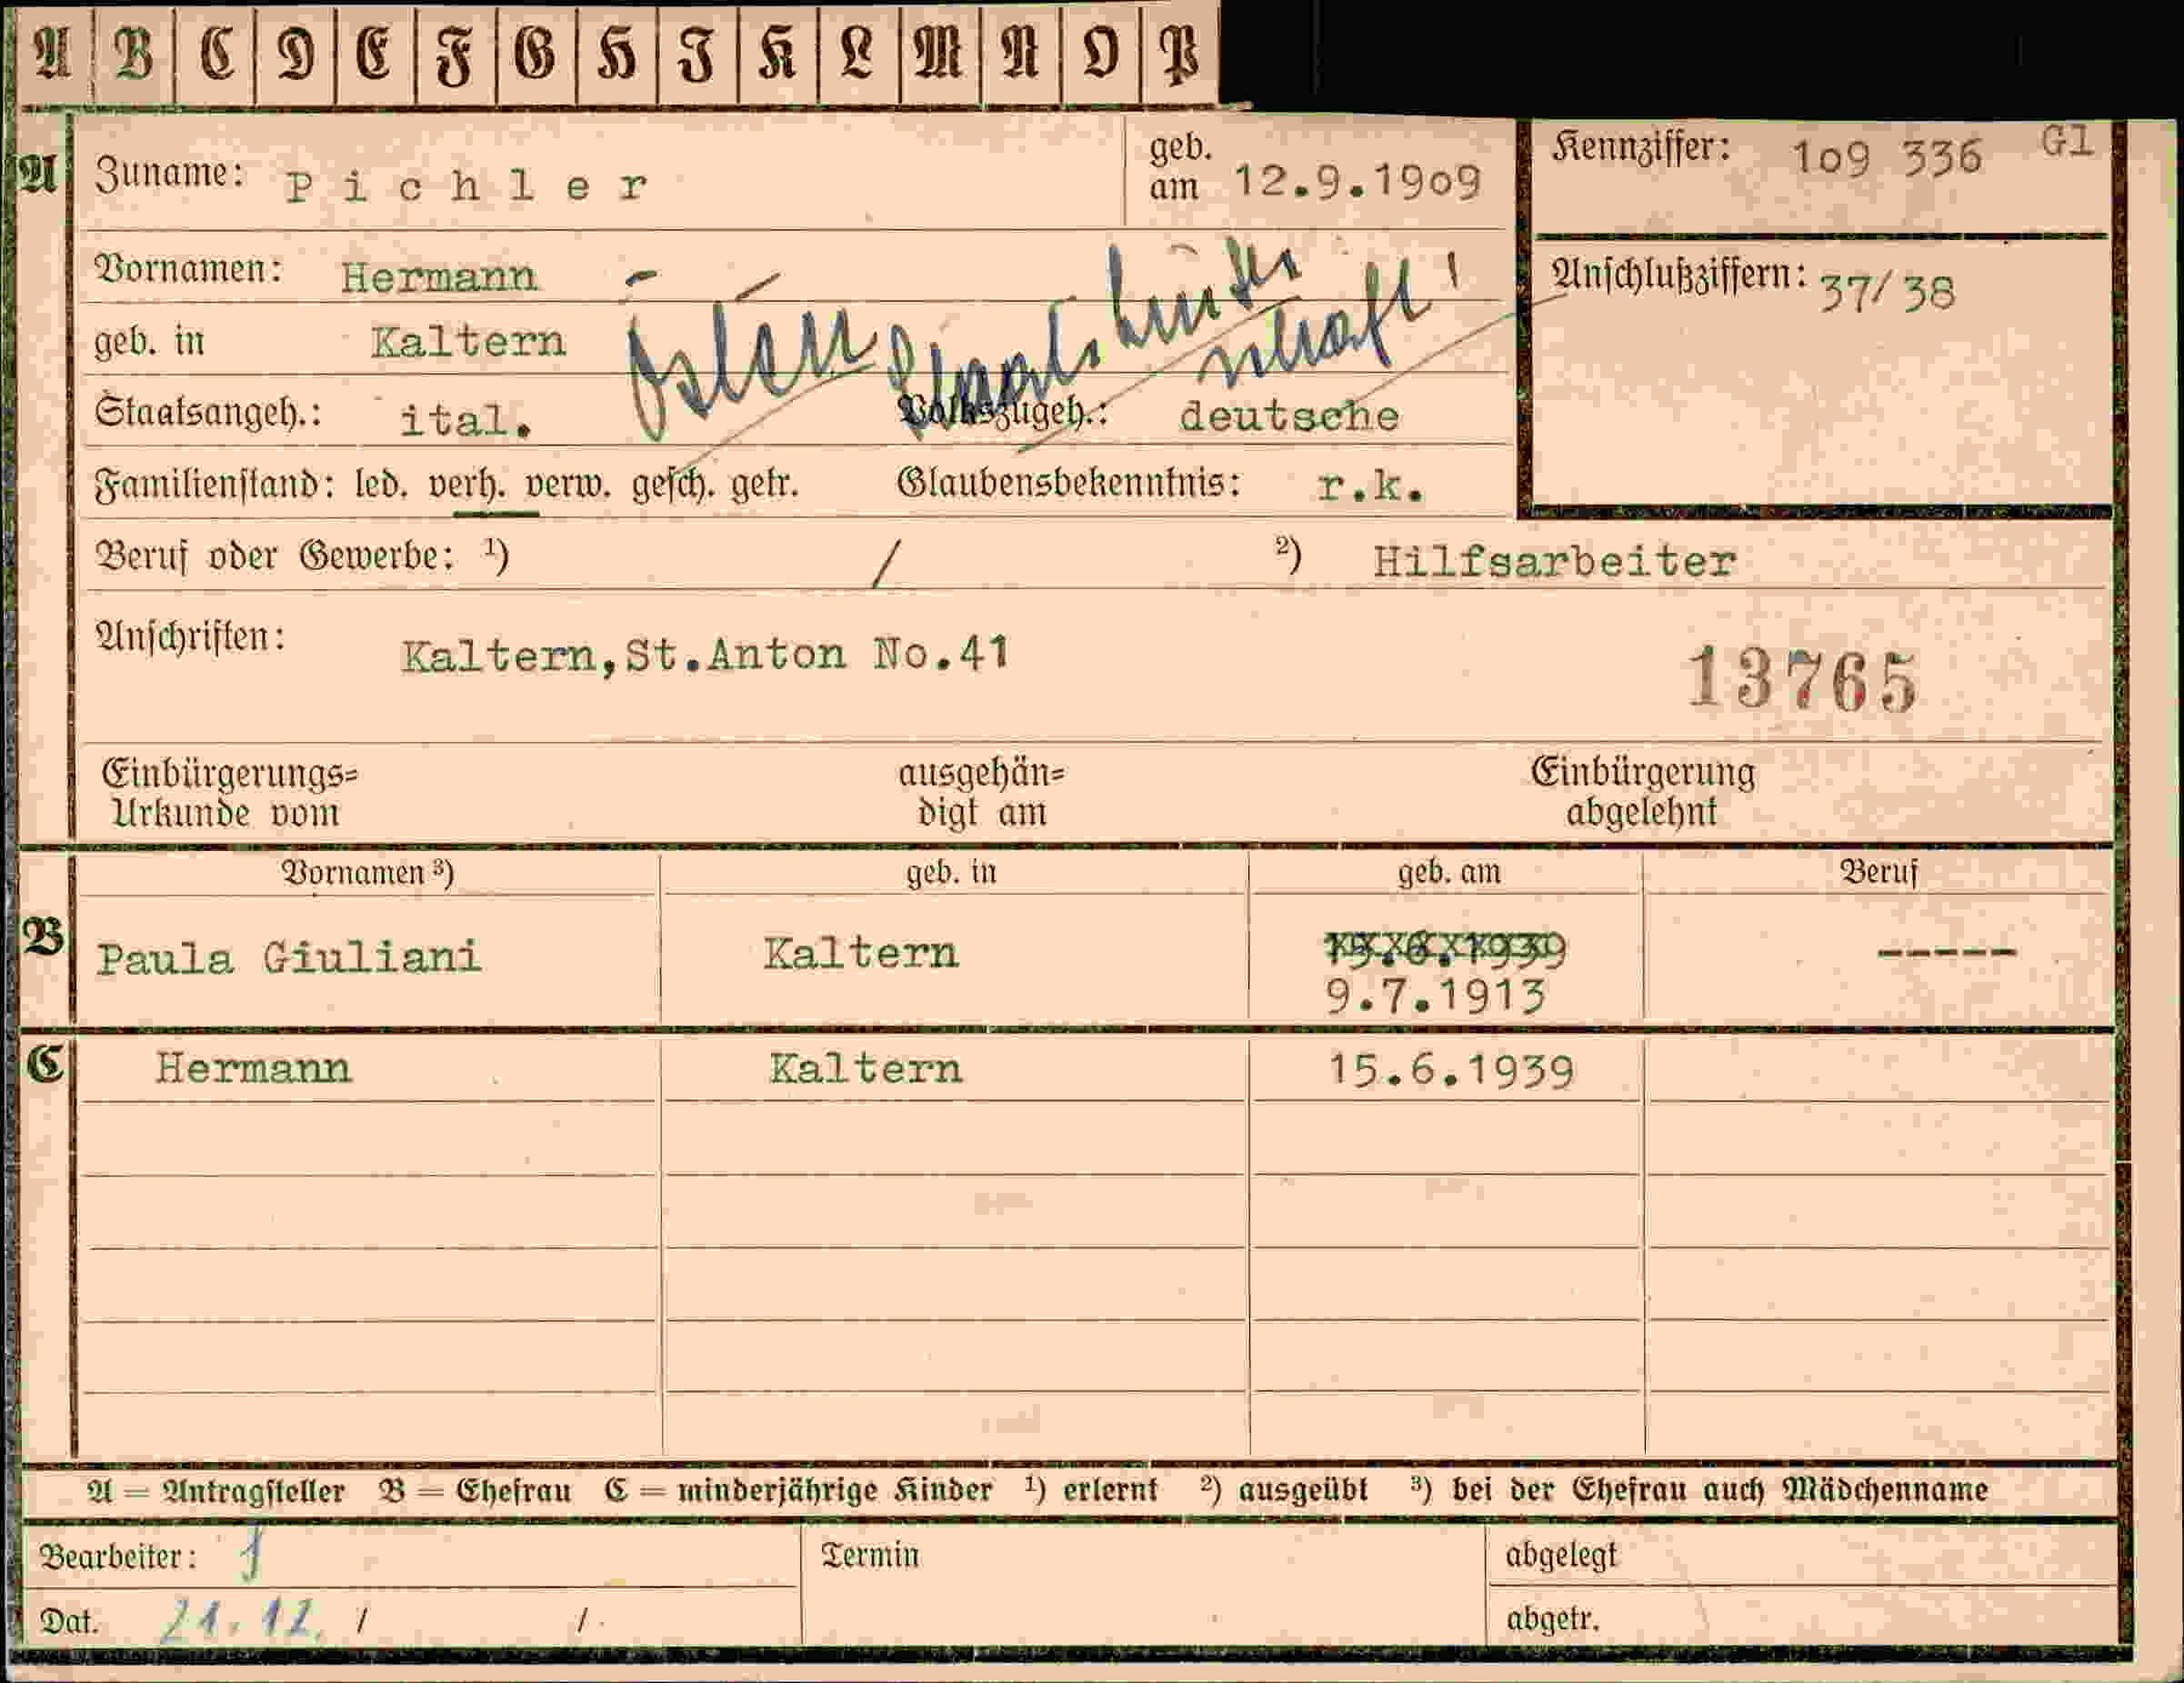 A B C D E F G H I K L M N O P
A Zuname: Pichler geb. am 12.9.1909 Kennziffer: 109 336 Gl
Vornamen: Hermann Anschlußziffern: 37/38
geb. in Kaltern
Staatsangeh.: ital. Volkszugeh.: deutsche
Familienstand: led. verh. verw. gesch. getr. Glaubensbekenntnis: r.k.
Beruf oder Gewerbe: ¹) / ²) Hilfsarbeiter
Anschriften: Kaltern,St.Anton No.41
13765
Einbürgerungs= ausgehän= Einbürgerung
Urkunde vom digt am abgelehnt
Vornamen ³) geb. in geb. am Beruf
B Paula Giuliani Kaltern 15.6.1939 -----
9.7.1913
C Hermann Kaltern 15.6.1939
A = Antragsteller B = Ehefrau C = minderjährige Kinder ¹) erlernt ²) ausgeübt ³) bei der Ehefrau auch Mädchenname
Bearbeiter: Termin abgelegt
Dat. 21.12. / /. abgetr.